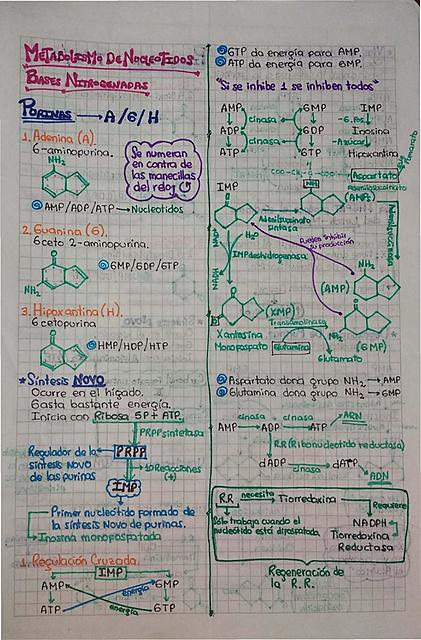 METABOLISMO DE NUCLEOTIDOS
BASES NITROGENADAS
PURINAS → A/G/H
1. Adenina (A).
6-aminopurina.
NH₂
Se numeran
en contra de
las manecillas
del reloj
AMP/ADP/ATP → Nucleotidos
2. Guanina (G).
6ceto 2-aminopurina.
O
NH₂
GMP/GDP/GTP
3. Hipoxantina (H).
6 cetopurina
O
HMP/HDP/HTP
*Síntesis NOVO
Ocurre en el hígado.
Gasta bastante energía.
Inicia con Ribosa 5P + ATP.
PRPP sintetasa
Regulador de la
síntesis NOVO
de las purinas
PRPP
10 Reacciones
(+)
IMP
Primer nucleótido formado de
la síntesis Novo de purinas.
Inosina monofosfatada
1. Regulación Cruzada.
IMP
AMP
GMP
energía
ATP
energía
GTP
GTP da energía para AMP.
ATP da energía para GMP.
"Si se inhibe 1 se inhiben todos"
AMP GMP IMP
cinasa
-6.Fos.
ADP GDP Inosina
cinasa
-Azúcar
ATP GTP Hipoxantina
Fumarato
Aspartato
NH
adenilsuccinato
(AMPs)
IMP
Adenilsuccinato
sintasa
H₂O
IMPdeshidrogenasa
Pueden inhibir
su producción
NH₂
(AMP)
O
(XMP)
Transaminasa
O
NH₂
(GMP)
Xantosina
Monofosfato
Glutamina
Glutamato
Aspartato dona grupo NH₂ → AMP
Glutamina dona grupo NH₂ → GMP
cinasa cinasa
AMP → ADP → ATP → ARN
R.R (Ribonucleotido reductasa)
dADP → dATP
cinasa
ADN
R.R necesita Tiorredoxina
Requiere
Sólo trabaja cuando el
nucleótido está difosfatado.
NADPH
Tiorredoxina
Reductasa
Regeneración de
la R.R.